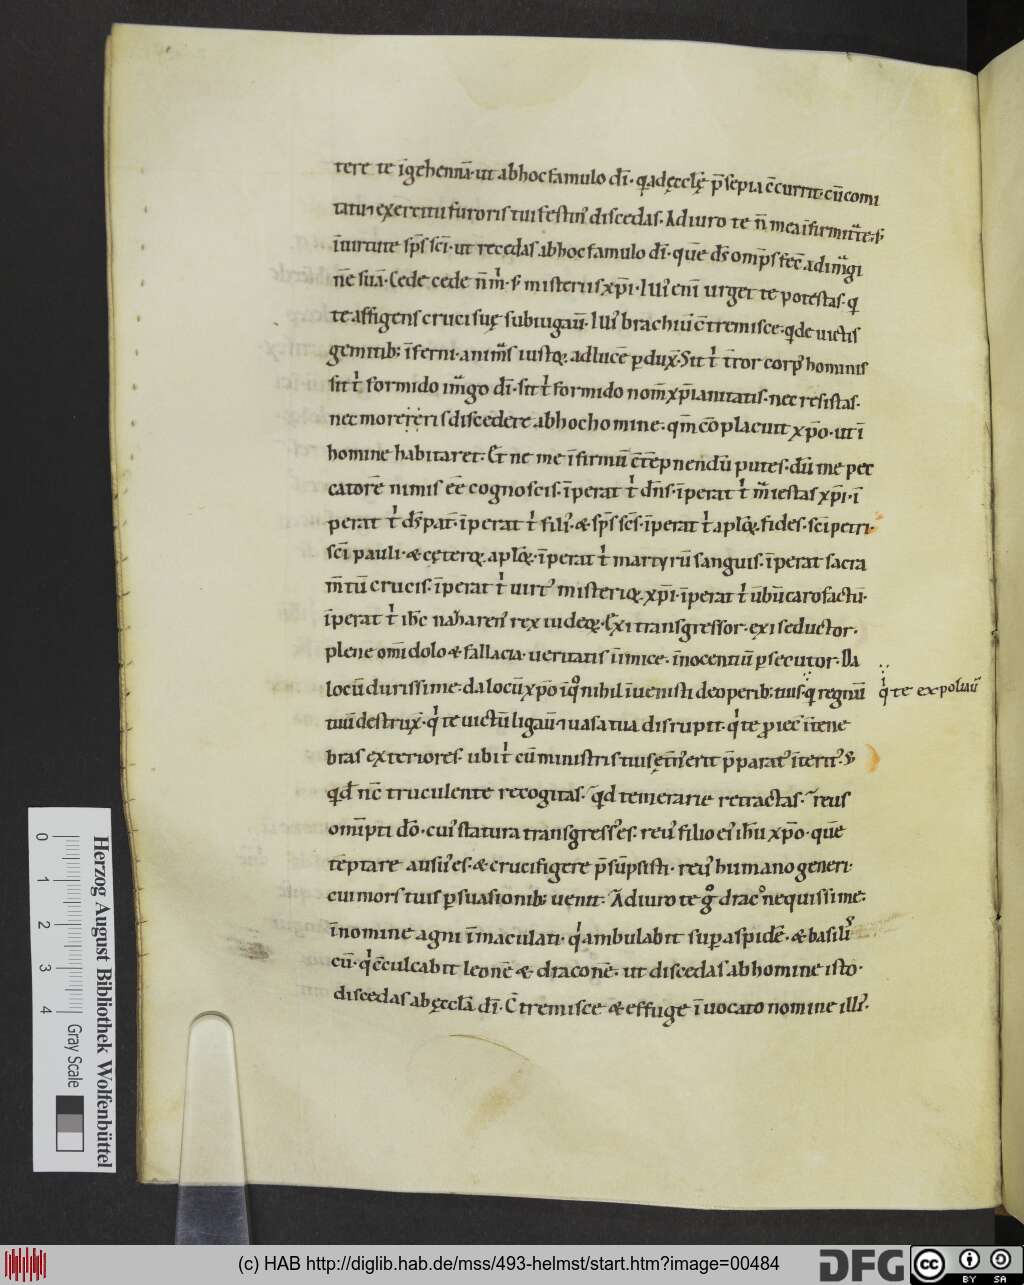 tere te īgehennā· ut abhoc famulo dī· q adęcclē p̄sepia c̄currit· cū comi
tatu ⁊ exercitu furoris tui festin᷒ discedas. Adiuro te n̄ mea īfirmitate· s;
īuirtute sp̄s sc̄i· ut recedas abhoc famulo dī· quē ds̄ omp̄s fec̄ adimagi
nē suā· Cede cede n̄ m̄· s; misteriis xp̄i· Illi᷒ eni̅ urget te potestas· q
te affigens cruci suę subiugauit· Illi᷒ brachiū c̄tremisce· q de uictis
gemitib; īferni· animas iustoꝝ adlucē ꝑdux̄· Sit t̄ terror corp᷒ hominis
sit t̄ formido imago dī· sit t̄ formido nom̄ xp̄ianitatis· nec resistas·
nec moreieris discedere abhoc homine· qm̄ cō placuit xp̄o· ut ī
homine habitaret· Et ne me īfirmū c̄tēpnendū putes· dū me pec
catorē nimis eē cognoscis· īperat t̄ dn̄s· īperat t̄ maiestas xp̄i· ī
perat t̄ ds̄ pat̄· īperat t̄ fili᷒· & sp̄s sc̄s· īperat t̄ aplōꝝ fides· sc̄i petri·
sc̄i pauli· & cęteroꝝ aplōꝝ· īperat t̄ martyrū sanguis· īperat sacra
m̄tū crucis· īperat t̄ uirt᷒ misterioꝝ xp̄i· īperat t̄ ūbū caro factū·
īperat t̄ ih̄c nazaren᷒ rex iudeoꝝ· Exi transgressor· exi seductor·
plene omī dolo & fallacia· ueritatis īimice· īnocentiū ꝑsecutor· Da
locū durissime· da locū xp̄o īquo nihil īuenisti deoperib; tuis· q regnū
tuū destrux̄· qi te uictū ligauit ⁊ uasa tua disrupit· qi te proiec̄ ītene
bras exteriores· ubi t̄ cū ministris tuis ęt̄n᷒ erit p̄parat᷒ īterit᷒· S;
qd nc̄ truculente recogitas· qd temerarie retractas· reus
omīpti dō· cui᷒ statura transgress᷒ es· reu᷒ filio ei᷒ ih̄u xp̄o· quē
tēptare ausu᷒ es· & crucifigere p̄sūpsisti· reu᷒ humano generi·
cui mors tuis ꝑsuasionib; uenit· Adiuro te g° draco nequissime·
īnomine agni īmaculati· qi ambulabit suꝑ aspidē· & basilis
cū· qi c̄culcabit leonē & draconē· ut discedas ab homine isto·
discedas abęcclā dī· C̄tremisce & effuge īuocato nomine illi᷒·
qi te expoliauit
0
1
2
3
4
Gray Scale
Herzog August Bibliothek Wolfenbüttel
(c) HAB http://diglib.hab.de/mss/493-helmst/start.htm?image=00484
DFG
cc
BY SA